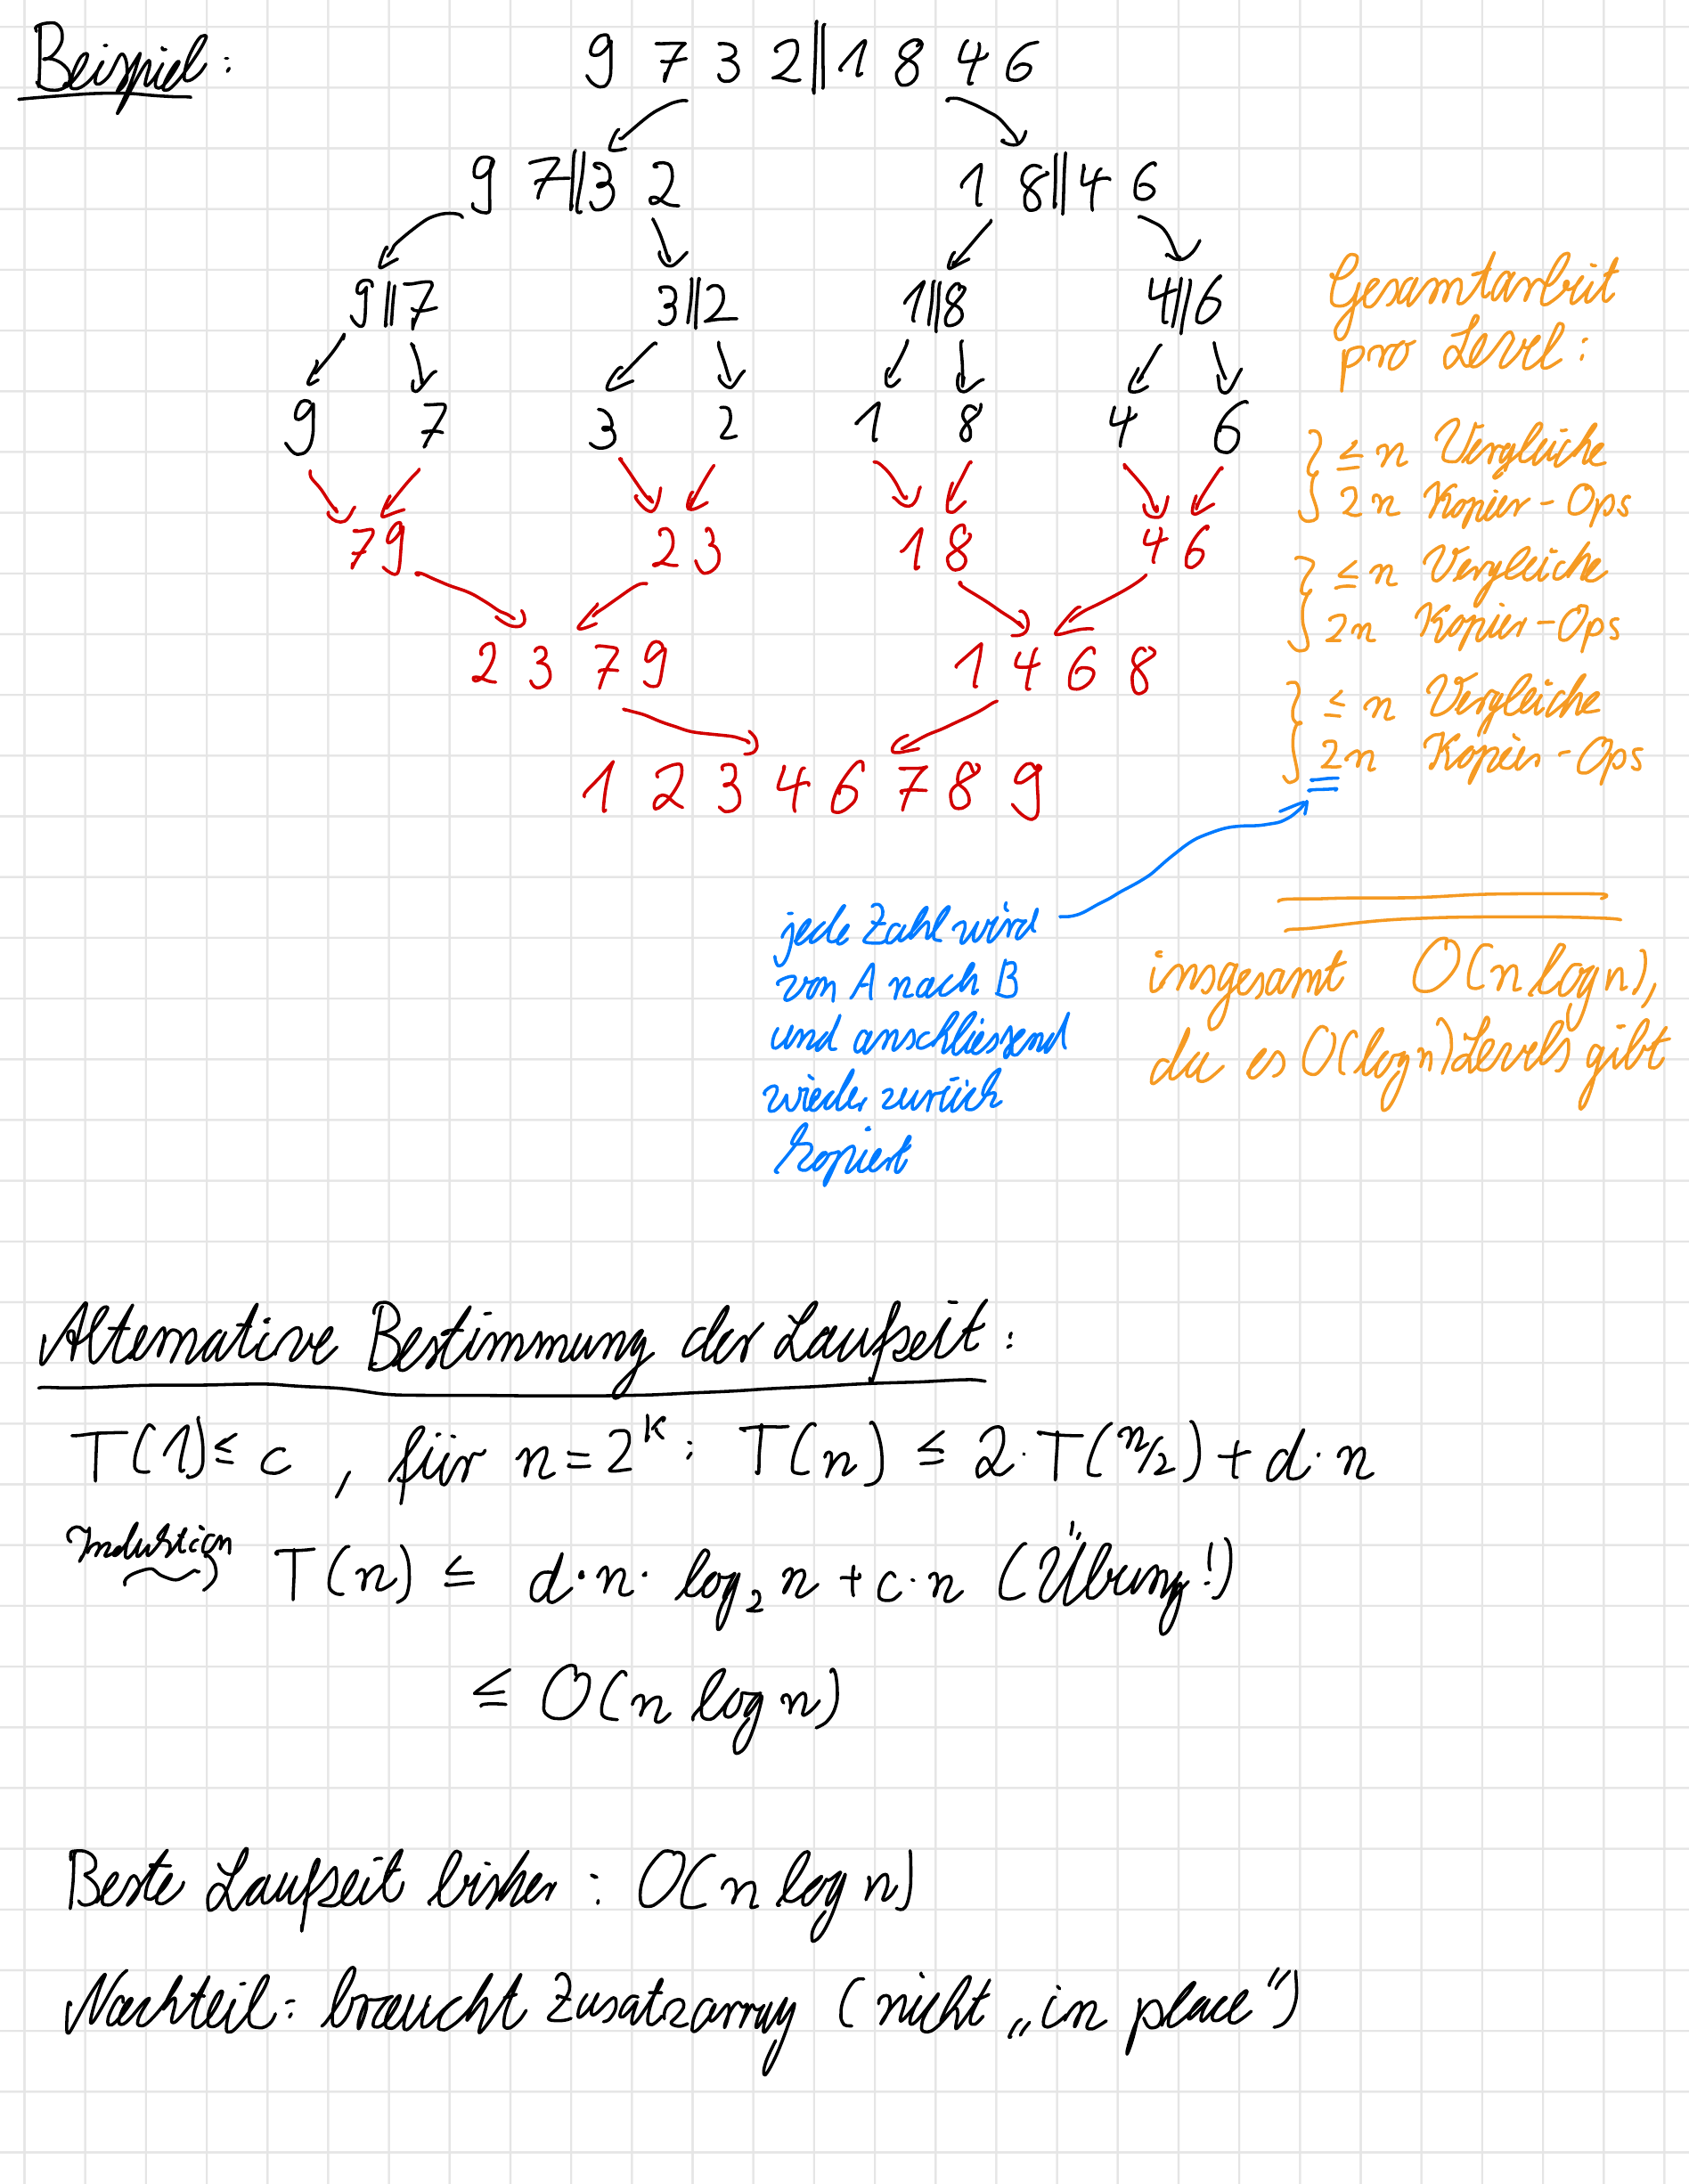 Beispiel:
9 7 3 2 || 1 8 4 6
9 7 || 3 2
1 8 || 4 6
9 || 7
3 || 2
1 || 8
4 || 6
9 7 3 2 1 8 4 6
7 9
2 3
1 8
4 6
2 3 7 9
1 4 6 8
1 2 3 4 6 7 8 9
Gesamtarbeit
pro Level:
} ≤ n Vergleiche
2n Kopier-Ops
} ≤ n Vergleiche
2n Kopier-Ops
} ≤ n Vergleiche
2n Kopier-Ops
jede Zahl wird
von A nach B
und anschliessend
wieder zurück
kopiert
insgesamt O(n log n),
da es O(log n) Levels gibt
Alternative Bestimmung der Laufzeit:
T(1) ≤ c , für n = 2^k : T(n) ≤ 2·T(n/2) + d·n
Induktion T(n) ≤ d·n·log₂ n + c·n (Übung!)
≤ O(n log n)
Beste Laufzeit bisher : O(n log n)
Nachteil: braucht Zusatzarray (nicht „in place")